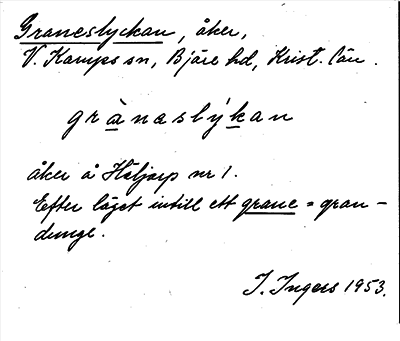 Graneslyckan, åker,
V. Karups sn, Bjäre hd, Krist. län.
grànæslýkan
åker å Häljarp nr 1.
Efter läget intill ett grane = gran-
dunge.
I. Ingers 1953.